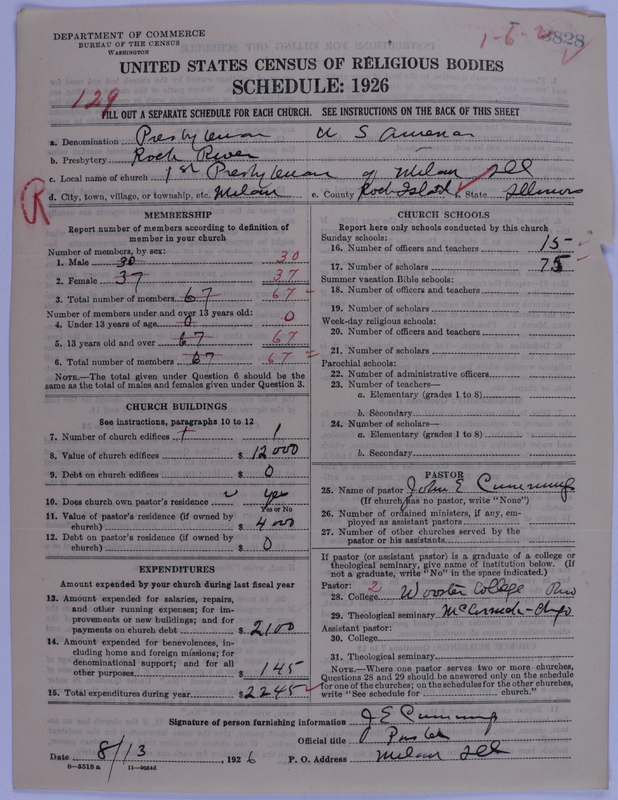 DEPARTMENT OF COMMERCE
BUREAU OF THE CENSUS
WASHINGTON
3828
UNITED STATES CENSUS OF RELIGIOUS BODIES
SCHEDULE: 1926
129
FILL OUT A SEPARATE SCHEDULE FOR EACH CHURCH. SEE INSTRUCTIONS ON THE BACK OF THIS SHEET
a. Denomination Presbyterian U S America
b. Presbytery Rock River
c. Local name of church 1st Presbyterian of Milan Ill
d. City, town, village, or township, etc. Milan e. County Rock Island f. State Illinois
R
MEMBERSHIP
Report number of members according to definition of
member in your church
Number of members, by sex:
1. Male 30 30
2. Female 37 37
3. Total number of members 67 67
Number of members under and over 13 years old:
4. Under 13 years of age 0 0
5. 13 years old and over 67 67
6. Total number of members 67 67
NOTE.—The total given under Question 6 should be the
same as the total of males and females given under Question 3.
CHURCH BUILDINGS
See instructions, paragraphs 10 to 12
7. Number of church edifices 1 1
8. Value of church edifices $ 12000
9. Debt on church edifices $ 0
10. Does church own pastor's residence yes
Yes or No
11. Value of pastor's residence (if owned by
church) $ 4000
12. Debt on pastor's residence (if owned by
church) $ 0
EXPENDITURES
Amount expended by your church during last fiscal year
13. Amount expended for salaries, repairs,
and other running expenses; for im-
provements or new buildings; and for
payments on church debt $ 2100
14. Amount expended for benevolences, in-
cluding home and foreign missions; for
denominational support; and for all
other purposes $ 145
15. Total expenditures during year $ 2245
CHURCH SCHOOLS
Report here only schools conducted by this church
Sunday schools:
16. Number of officers and teachers 15
17. Number of scholars 75
Summer vacation Bible schools:
18. Number of officers and teachers
19. Number of scholars
Week-day religious schools:
20. Number of officers and teachers
21. Number of scholars
Parochial schools:
22. Number of administrative officers
23. Number of teachers—
a. Elementary (grades 1 to 8)
b. Secondary
24. Number of scholars—
a. Elementary (grades 1 to 8)
b. Secondary
PASTOR
25. Name of pastor John E Cummings
(If church has no pastor, write "None")
26. Number of ordained ministers, if any, em-
ployed as assistant pastors
27. Number of other churches served by the
pastor or his assistants
If pastor (or assistant pastor) is a graduate of a college or
theological seminary, give name of institution below. (If
not a graduate, write "No" in the space indicated.)
Pastor: 2
28. College Wooster College Ohio
29. Theological seminary McCormick-Chicago
Assistant pastor:
30. College
31. Theological seminary
NOTE.—Where one pastor serves two or more churches,
Questions 28 and 29 should be answered only on the schedule
for one of the churches; on the schedules for the other churches,
write "See schedule for church."
Signature of person furnishing information J E Cummings
Official title Pastor
Date 8/13, 1926 P. O. Address Milan Ill
8—5518 a